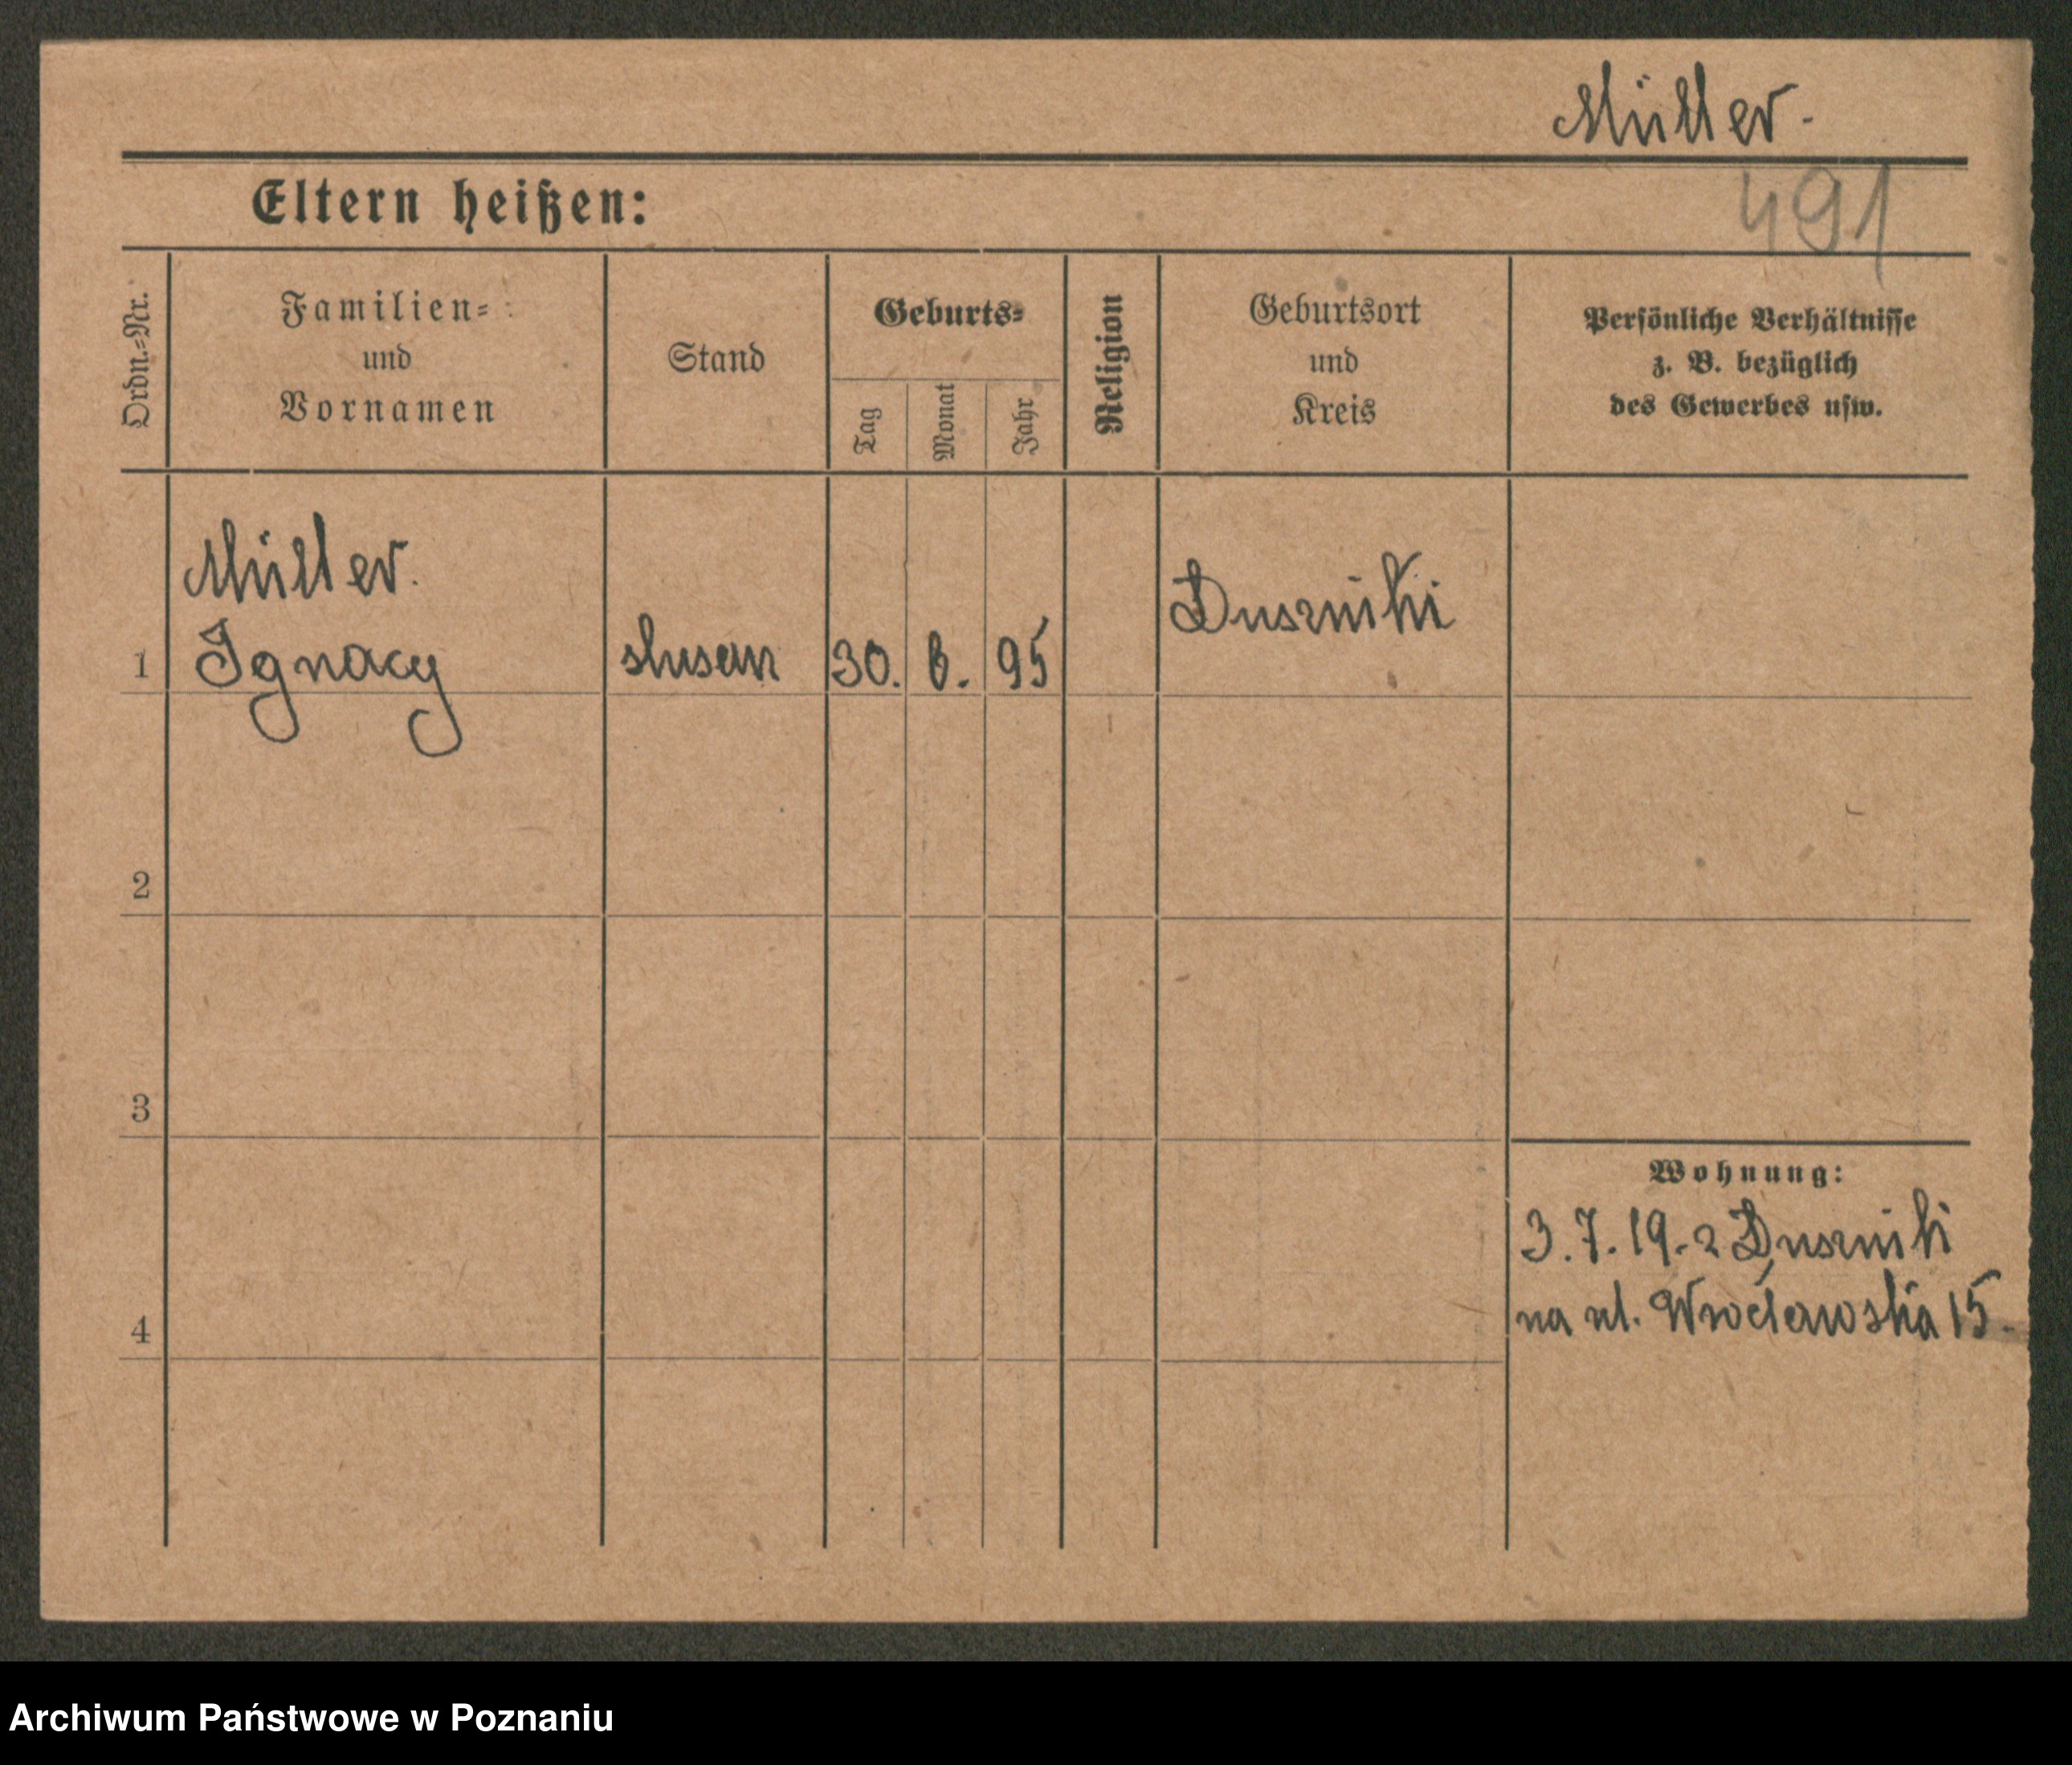 Müller.
Eltern heißen:
491
Ordn.-Nr.
Familien-
und
Vornamen
Stand
Geburts-
Tag
Monat
Jahr
Religion
Geburtsort
und
Kreis
Persönliche Verhältnisse
z. B. bezüglich
des Gewerbes usw.
Müller.
1 Ignacy
30. 6. 95
Duszniki
2
3
Wohnung:
3.7.19. z Duszniki
na ul. Wrocławska 15.
4
Archiwum Państwowe w Poznaniu